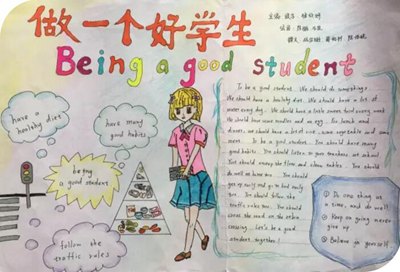 做一个好学生
Being a good student
have a
healthy diet
have many
good habits
being
a good student
follow the
traffic rules
To be a good student. We should do something.
We should have a healthy diet. We should have a lot of
We should have some noodles and an egg. For lunch and
dinner, we should have a lot of rice, some vegetable and some
meat. To be a good student. You should have many
good habits. You should listen to your teachers
You should
do well
get up early and go to bed early
You should follow the
traffic rules too. You should
cross the road on the zebra
crossing. Let's be a good
student, together!
① Do one thing at
a time, and do well
② Keep on going never
give up
③ Believe in yourself